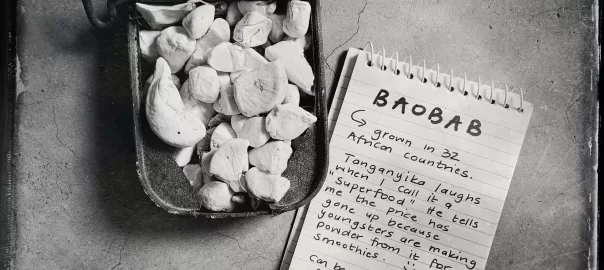 BAOBAB
↳ grown in 32
African countries.
Tanganyika laughs
when I call it a
"Superfood" He tells
me the price has
gone up because
youngsters are making
powder from it for
smoothies.
can be